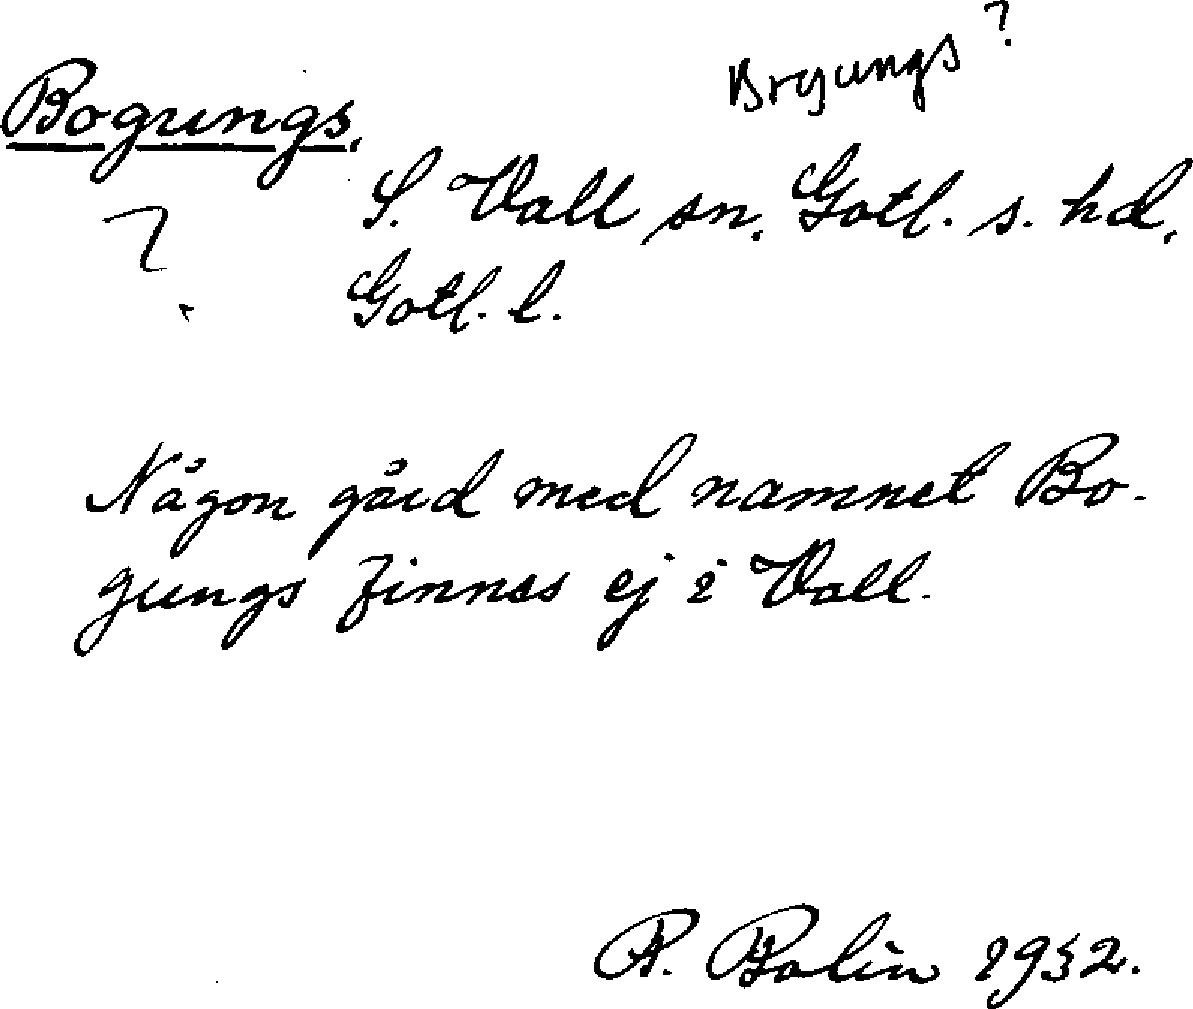 Brgungs ?
Bogungs.
? S. Vall sn. Gotl. s. hd.
Gotl. l.
Någon gård med namnet Bo-
gungs finnes ej i Vall.
P. Bolin 1932.